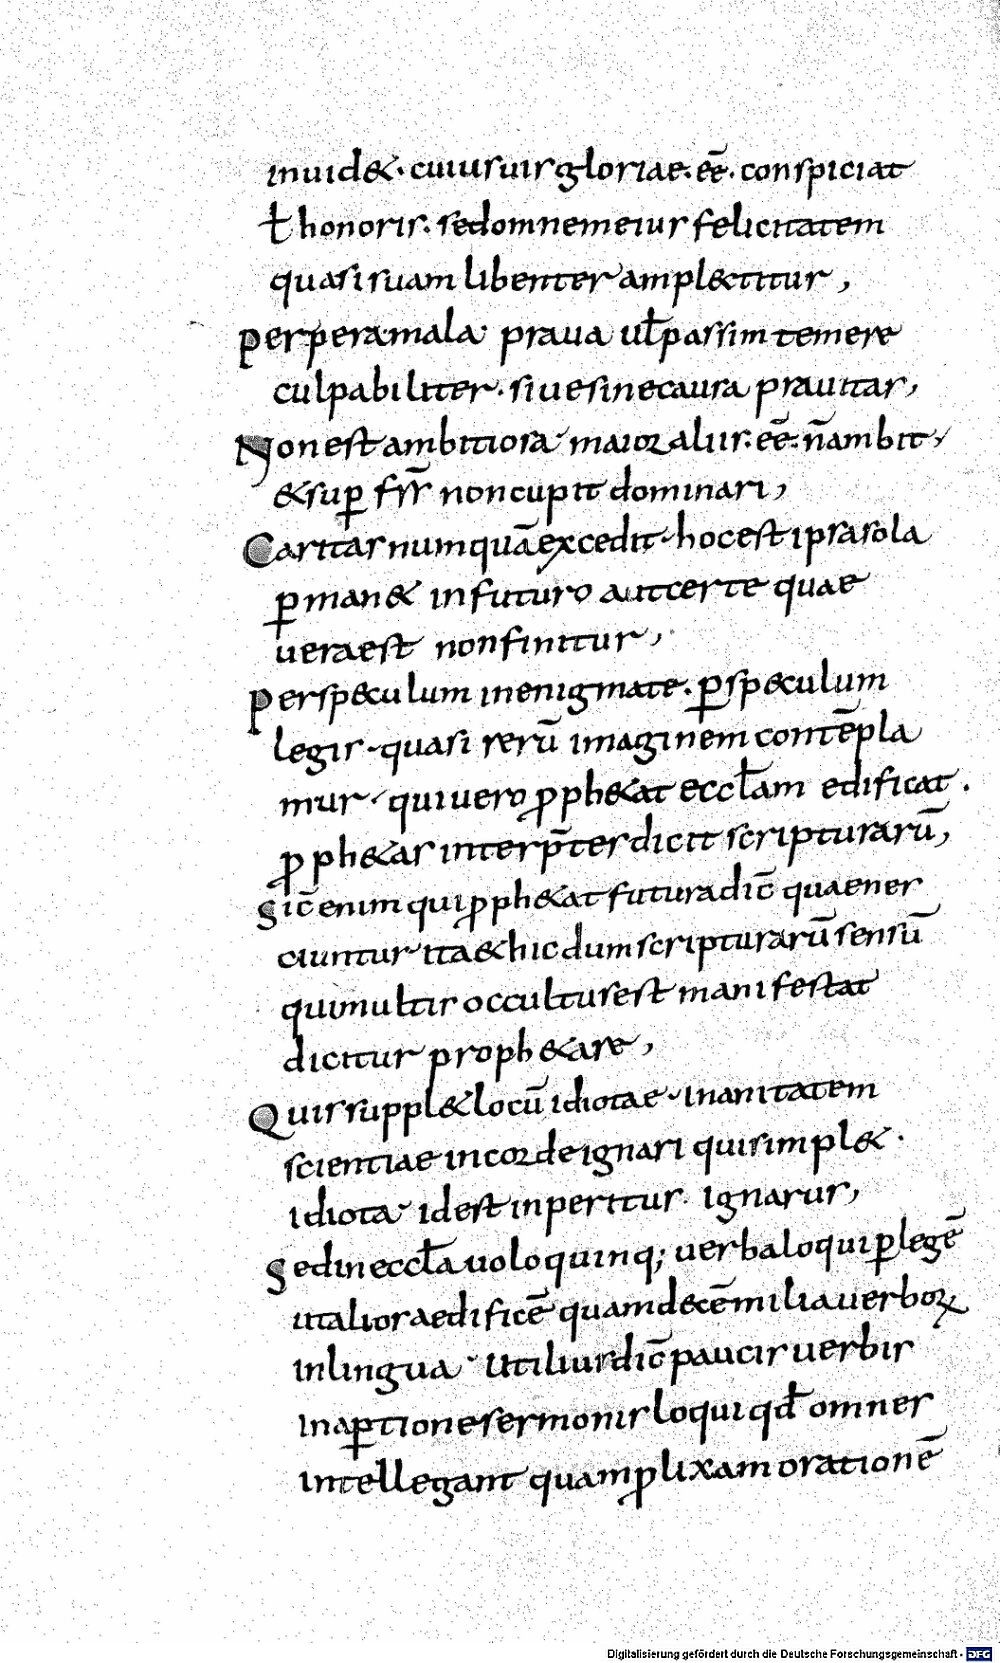 inuid&· cuiusuis gloriae· eē· conspiciat
ł honoris· sed omnem eius felicitatem
quasi suam libenter ampl&titur,
Perpera· mala· praua uł passim temere
culpabiliter· siue sine causa prauitas,
Non est ambitiosa· maior aliis· eē· n̄ ambit,
& suꝑ fr̄s non cupit dominari,
Caritas numquā excedit· hoc est ipsa sola
ꝑman& in futuro aut certe quae
uera est non finitur,
Per sp&culum in enigmate· ꝑ sp&culum
legis· quasi rerū imaginem contēpla
mur· qui uero ꝓph&at eccłam edificat·
ꝓph&as interp̄ter dicit scripturarū,
Sic̄ enim qui ꝓph&at futura dic̄ quae nes
ciuntur· ita & hic dum scripturarū sensū
qui multis occultus est manifestat
dicitur proph&are,
Quis suppl&locū idiotae· inanitatem
scientiae in corde ignari quis impl&·
idiota· id est inperitus· ignarus,
Sed in eccła uolo quinq; uerba loqui ꝑ legē
ut alios aedificē quam decē milia uerboꝝ
In lingua· Utilius dic̄ paucis uerbis
In aꝑtione sermonis loqui qđ omnes
Intellegant quam ꝓlixam orationē
Digitalisierung gefördert durch die Deutsche Forschungsgemeinschaft - DFG